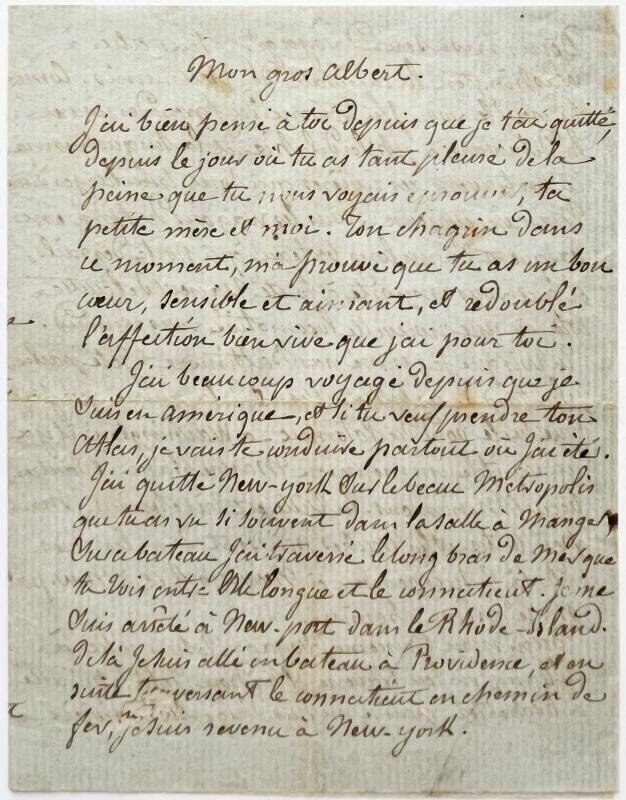 Mon gros Albert.
J'ai bien pensé à toi depuis que je t'ai quitté,
depuis le jour où tu as tant pleuré de la
peine que tu nous voyais éprouver, ta
petite mère et moi. Ton chagrin dans
ce moment, m'a prouvé que tu as un bon
cœur, sensible et aimant, et redoublé
l'affection bien vive que j'ai pour toi.
J'ai beaucoup voyagé depuis que je
suis en amérique, et si tu veux prendre ton
atlas, je vais te conduire partout où J'ai été.
J'ai quitté New-york sur le beau Métropolis
que tu as vu si souvent dans la salle à Manger
Sur ce bateau J'ai traversé le long bras de Mer que
tu vois entre l'Ile longue et le connecticut. Je me
suis arrêté à New-port dans le Rhode-Island.
de là Je suis allé en bateau à Providence, et en
suite traversant le connecticut en chemin de
fer, je suis revenu à New-york.